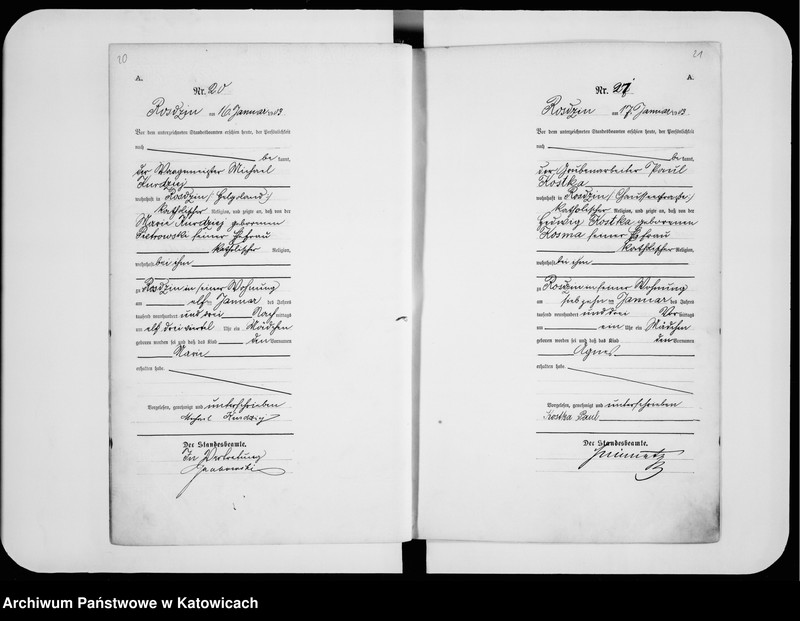 20
A.
Nr. 20
Rosdzin am 16. Januar 1903.
Vor dem unterzeichneten Standesbeamten erschien heute, der Persönlichkeit
nach
be kannt,
der Waagemeister Michael
Kurdziej
wohnhaft in Rosdzin (Helgoland)
katholischer Religion, und zeigte an, daß von der
Marie Kurdziej geborenen
Pietrowski seiner Ehefrau
katholischer Religion,
wohnhaft bei ihm
zu Rosdzin in seiner Wohnung
am elf Januar des Jahres
tausend neunhundert und drei Nachmittags
um elf dreiviertel Uhr ein Mädchen
geboren worden sei und daß das Kind den Vornamen
Marie
erhalten habe.
Vorgelesen, genehmigt und unterschrieben
Michail Kurdziej
Der Standesbeamte.
In Vertretung
21
A.
Nr. 21
Rosdzin am 17. Januar 1903.
Vor dem unterzeichneten Standesbeamten erschien heute, der Persönlichkeit
nach
be kannt,
der Grubenarbeiter Paul
Kostka
wohnhaft in Rosdzin (Chausseestraße)
katholischer Religion, und zeigte an, daß von der
Hedwig Kostka geborenen
Kosma seiner Ehefrau
katholischer Religion,
wohnhaft bei ihm
zu Rosdzin in seiner Wohnung
am Januar des Jahres
tausend neunhundert und drei Vormittags
um ein Uhr ein Mädchen
geboren worden sei und daß das Kind den Vornamen
Agnes
erhalten habe.
Vorgelesen, genehmigt und unterschrieben
Kostka Paul
Der Standesbeamte.
Archiwum Państwowe w Katowicach